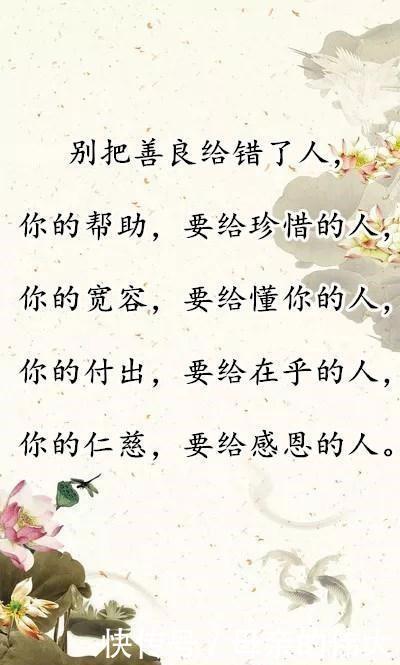 别把善良给错了人，
你的帮助，要给珍惜的人，
你的宽容，要给懂你的人，
你的付出，要给在乎的人，
你的仁慈，要给感恩的人。